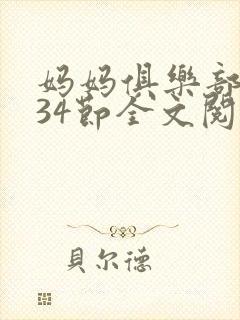 妈妈俱樂部
34節全文閱
貝尔德